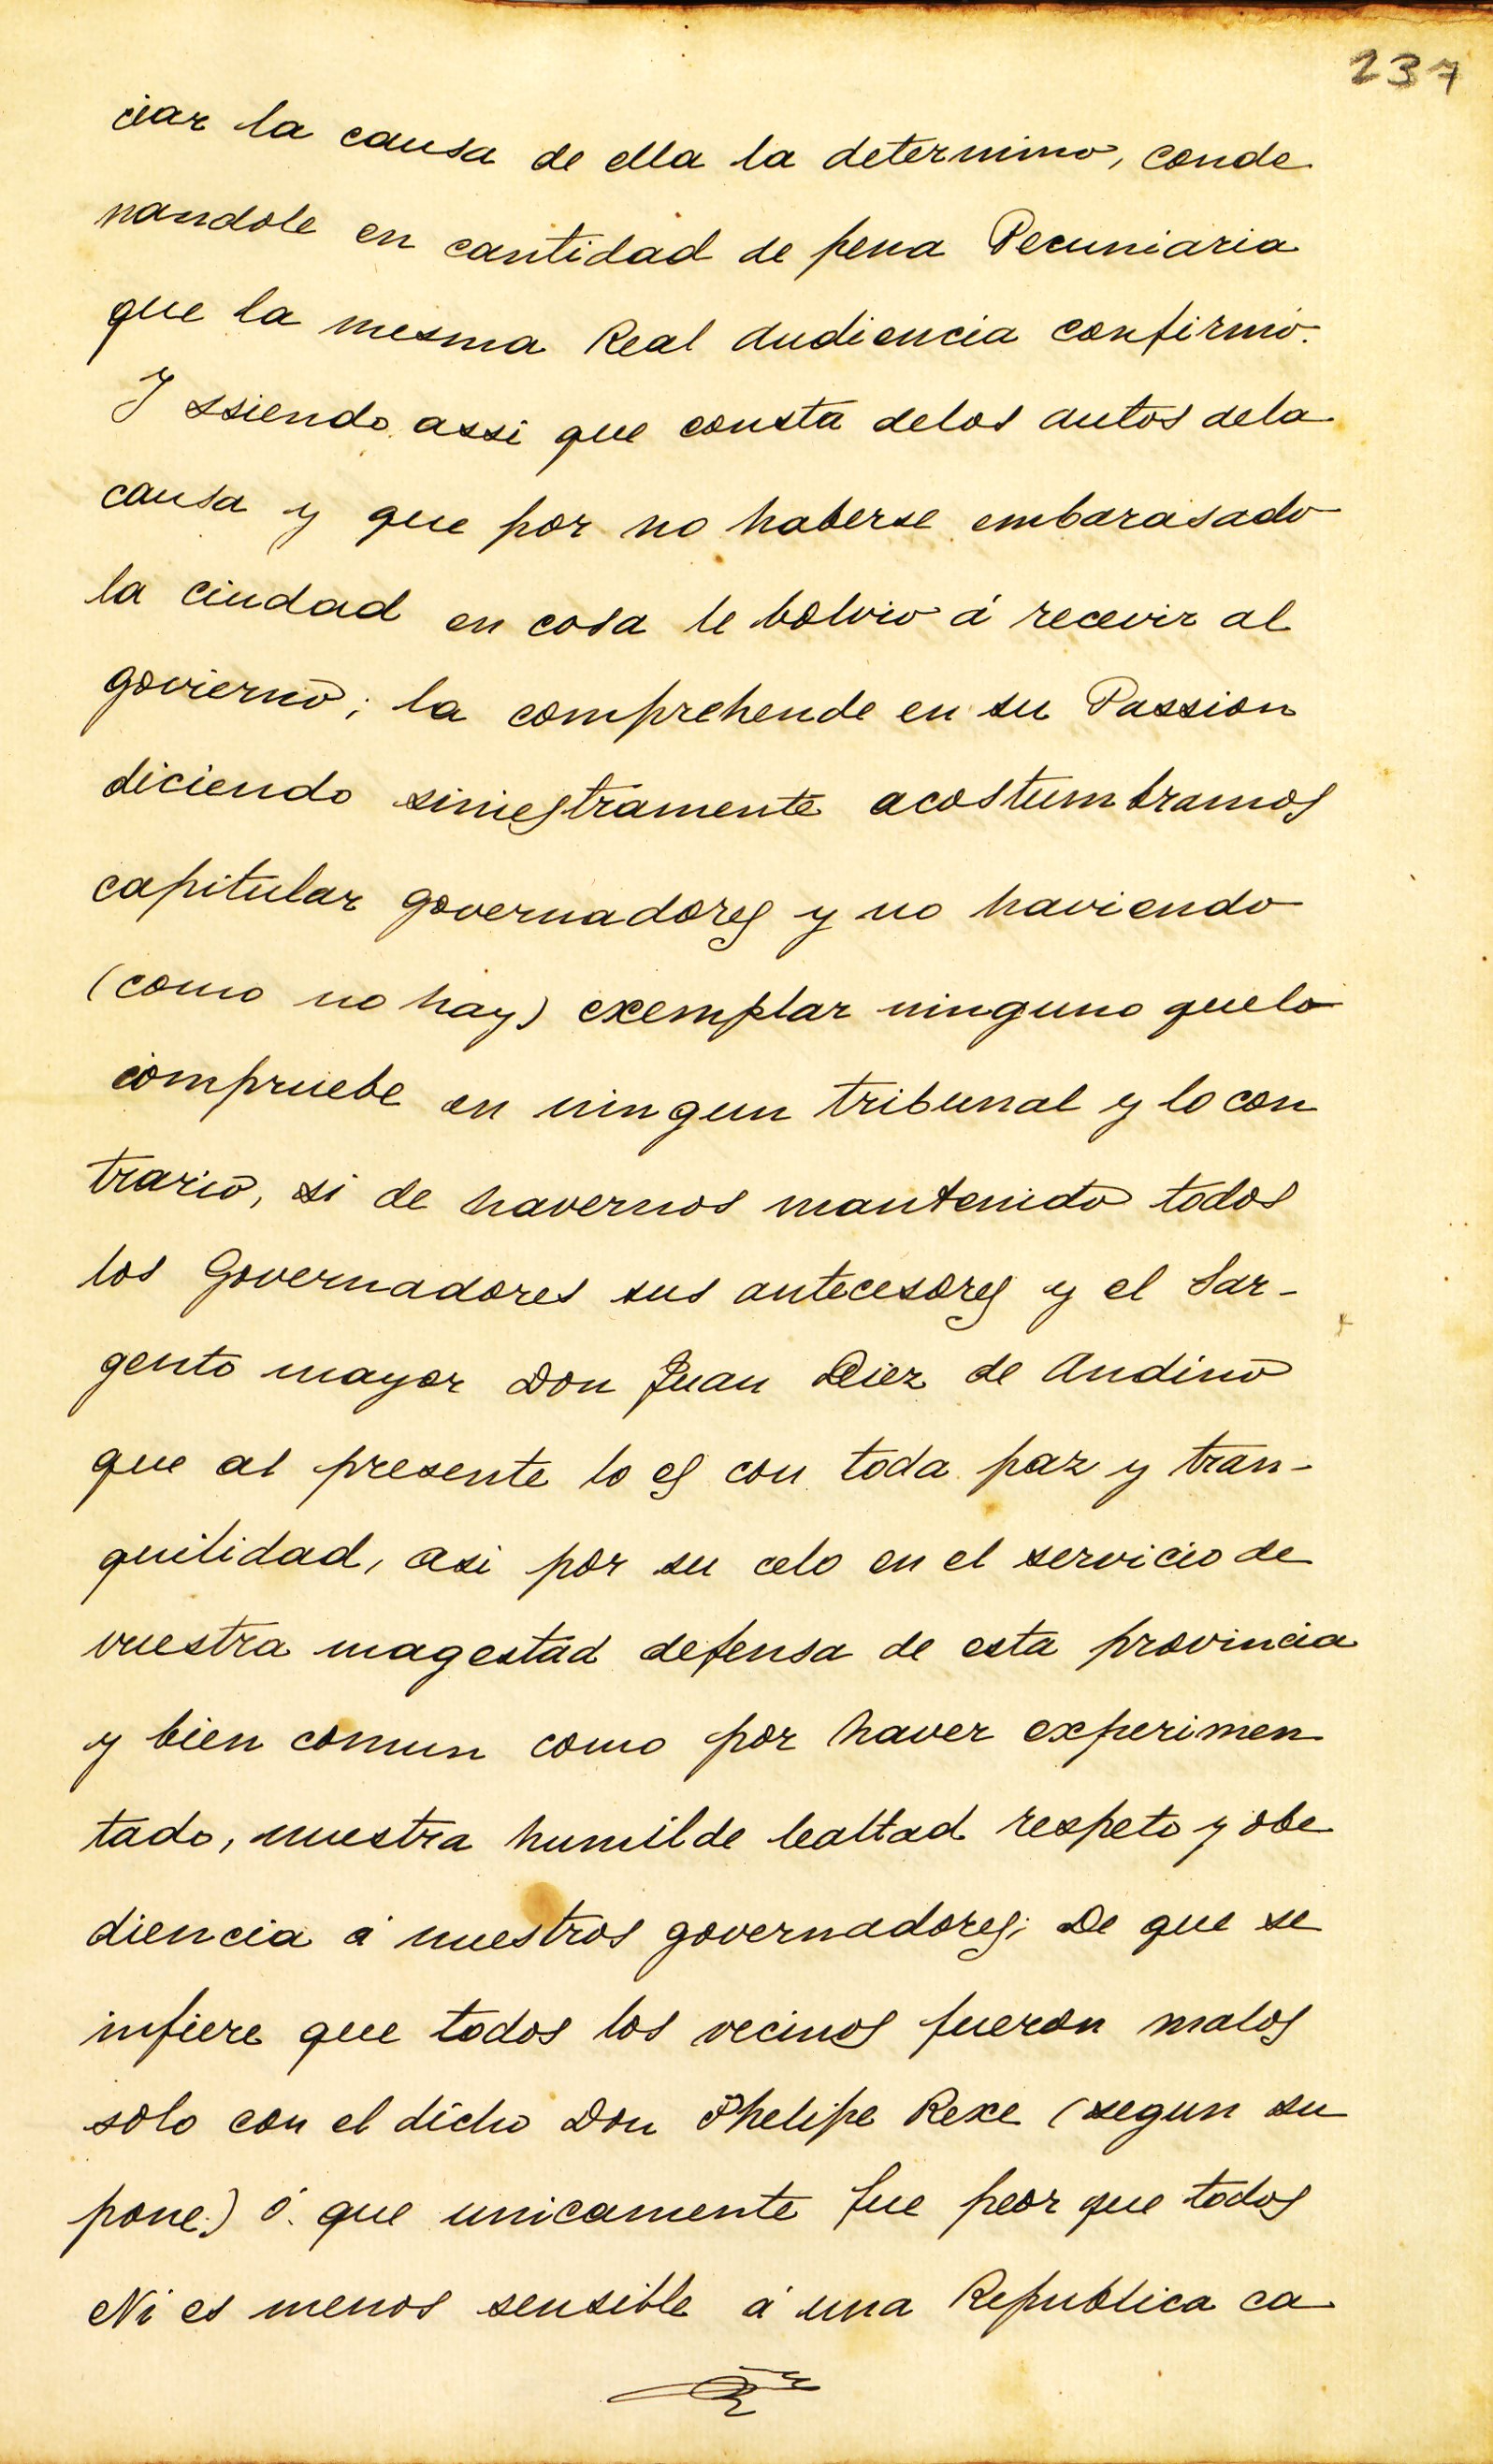 237
ciar la causa de ella la determino, conde
nandole en cantidad de pena Pecuniaria
que la mesma Real Audiencia confirmó.
Y ssiendo assi que consta delos autos dela
causa y que por no haberse embarasado
la ciudad en cosa le bolvio á recevir al
govierno; la comprehende en su Passion
diciendo siniestramente acostumbramos
capitular governadores y no haviendo
(como no hay) exemplar ninguno quelo
compruebe en ningun tribunal y lo con
trario, si de havernos mantenido todos
los Governadores sus antecesores y el Sar-
gento mayor Don Juan Diez de Andino
que al presente lo es con toda paz y tran-
quilidad, asi por su celo en el servicio de
vuestra magestad defensa de esta provincia
y bien comun como por haver experimen
tado, nuestra humilde lealtad respeto y obe
diencia á nuestros governadores; De que se
infiere que todos los vecinos fueron malos
solo con el dicho Don Phelipe Rexe (segun su
pone) ó que unicamente fue peor que todos
Ni es menos sensible á una Republica ca